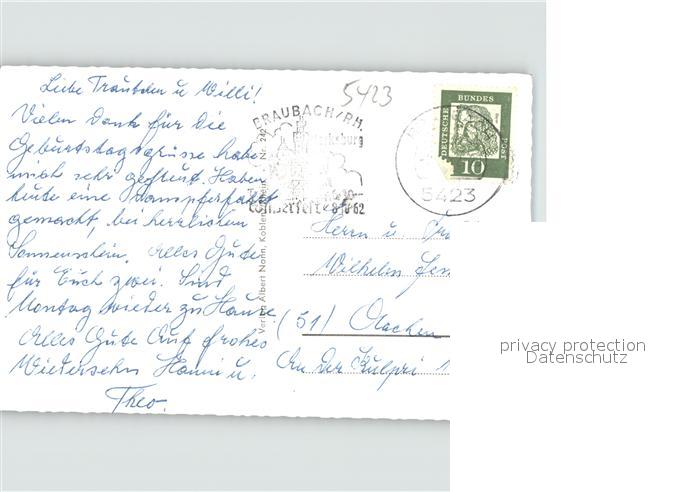 5423
Liebe Traudchen u Willi!
Vielen Dank für die
Geburtstagsgrüsse habe
mich sehr gefreut. Haben
heute eine Dampferfahrt
gemacht, bei herrlichen
Sonnenschein. Alles Gute
für Euch zwei. Sind
Montag wieder zu Hause
Alles Gute Auf frohes
Wiedersehn Hanni u.
Theo.
BRAUBACH/RH.
Marksburg
Winzerfest
8.10.62
DEUTSCHE BUNDES POST
10
5423
Verlag Albert Nonn, Koblenz
Herrn u.
Wilhelm
(51) Aachen
An der
privacy protection
Datenschutz